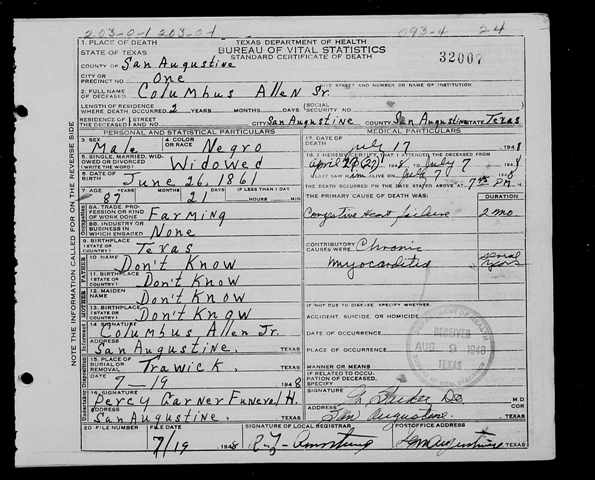 203-0-1 203-01 093-4 24
1. PLACE OF DEATH TEXAS DEPARTMENT OF HEALTH
STATE OF TEXAS BUREAU OF VITAL STATISTICS
STANDARD CERTIFICATE OF DEATH 32007
COUNTY OF San Augustine
CITY OR
PRECINCT NO. One
GIVE STREET AND NUMBER OR NAME OF INSTITUTION
2. FULL NAME
OF DECEASED Columbus Allen Sr.
LENGTH OF RESIDENCE
WHERE DEATH OCCURRED 2 YEARS MONTHS DAYS SOCIAL SECURITY NO.
RESIDENCE OF THE DECEASED STREET AND NO. CITY San Augustine COUNTY San Augustine STATE Texas
PERSONAL AND STATISTICAL PARTICULARS
3. SEX Male 4. COLOR OR RACE Negro
5. SINGLE, MARRIED, WIDOWED OR DIVORCED (WRITE THE WORD) Widowed
6. DATE OF BIRTH June 26, 1861
7. AGE YEARS 87 MONTHS DAYS 21 IF LESS THAN 1 DAY HOURS MIN
8A. TRADE, PROFESSION OR KIND OF WORK DONE Farming
8B. INDUSTRY OR BUSINESS IN WHICH ENGAGED None
9. BIRTHPLACE (STATE OR COUNTRY) Texas
10. NAME Don't Know
11. BIRTHPLACE (STATE OR COUNTRY) Don't Know
12. MAIDEN NAME Don't Know
13. BIRTHPLACE (STATE OR COUNTRY) Don't Know
14. SIGNATURE Columbus Allen Jr.
ADDRESS San Augustine. TEXAS
15. PLACE OF BURIAL OR REMOVAL Trawick. TEXAS
DATE 7-19 1948
16. SIGNATURE Percy Garner Funeral H.
ADDRESS San Augustine. TEXAS
MEDICAL PARTICULARS
17. DATE OF DEATH July 17 1948
18. I HEREBY CERTIFY THAT I ATTENDED THE DECEASED FROM
April 1948 TO July 7 1948
I LAST SAW H im ALIVE ON July 7 1948
THE DEATH OCCURRED ON THE DATE STATED ABOVE AT PM.
THE PRIMARY CAUSE OF DEATH WAS: DURATION
Congestive heart failure 2 mo
CONTRIBUTORY CAUSES WERE: Chronic
Myocarditis several years
IF NOT DUE TO DISEASE, SPECIFY WHETHER:
ACCIDENT, SUICIDE, OR HOMICIDE
DATE OF OCCURRENCE
PLACE OF OCCURRENCE
MANNER OR MEANS
IF RELATED TO OCCUPATION OF DECEASED, SPECIFY
RECEIVED
AUG 9 1948
TEXAS
SIGNATURE M.D.
ADDRESS San Augustine. TEXAS
20. FILE NUMBER FILE DATE 7/19 1948 SIGNATURE OF LOCAL REGISTRAR POSTOFFICE ADDRESS San Augustine TEXAS
NOTE THE INFORMATION CALLED FOR ON THE REVERSE SIDE